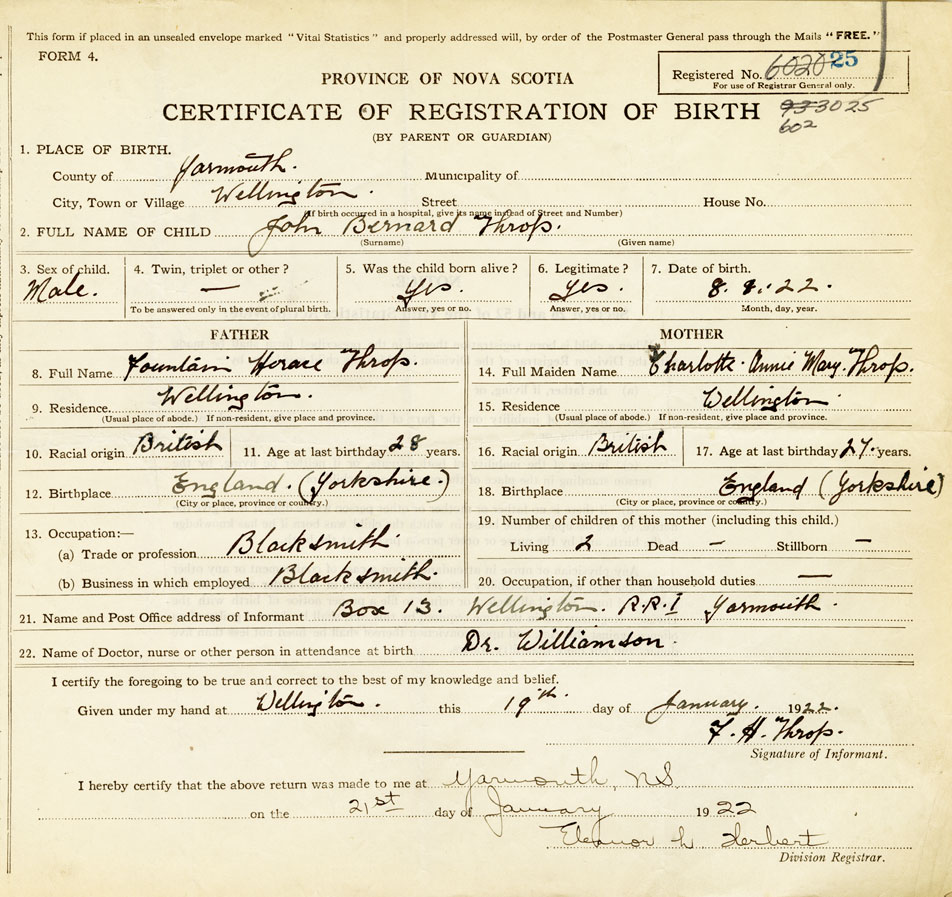 This form if placed in an unsealed envelope marked "Vital Statistics" and properly addressed will, by order of the Postmaster General pass through the Mails "FREE."
FORM 4.
Registered No. 6020 25
For use of Registrar General only.
PROVINCE OF NOVA SCOTIA
CERTIFICATE OF REGISTRATION OF BIRTH
933025
602
(BY PARENT OR GUARDIAN)
1. PLACE OF BIRTH.
County of Yarmouth. Municipality of
City, Town or Village Wellington. Street House No.
(If birth occurred in a hospital, give its name instead of Street and Number)
2. FULL NAME OF CHILD John Bernard Throp.
(Surname) (Given name)
3. Sex of child. 4. Twin, triplet or other? 5. Was the child born alive? 6. Legitimate? 7. Date of birth.
Male. — Yes. Yes.
To be answered only in the event of plural birth. Answer, yes or no. Answer, yes or no. Month, day, year.
FATHER MOTHER
8. Full Name Fountain Horace Throp. 14. Full Maiden Name Charlotte Annie Mary Throp.
9. Residence Wellington. 15. Residence Wellington
(Usual place of abode.) If non-resident, give place and province. (Usual place of abode.) If non-resident, give place and province.
10. Racial origin British 11. Age at last birthday 28 years. 16. Racial origin British 17. Age at last birthday 27. years.
12. Birthplace England. (Yorkshire.) 18. Birthplace England (Yorkshire)
(City or place, province or country.) (City or place, province or country.)
13. Occupation:— 19. Number of children of this mother (including this child.)
(a) Trade or profession Blacksmith Living 2 Dead — Stillborn —
(b) Business in which employed Blacksmith. 20. Occupation, if other than household duties —
21. Name and Post Office address of Informant Box 13. Wellington. R.R.I Yarmouth.
22. Name of Doctor, nurse or other person in attendance at birth Dr. Williamson.
I certify the foregoing to be true and correct to the best of my knowledge and belief.
Given under my hand at Wellington. this 19th. day of January. 1922.
F. H. Throp.
Signature of Informant.
I hereby certify that the above return was made to me at Yarmouth, NS
on the 21st day of January 1922
Eleanor L Herbert
Division Registrar.